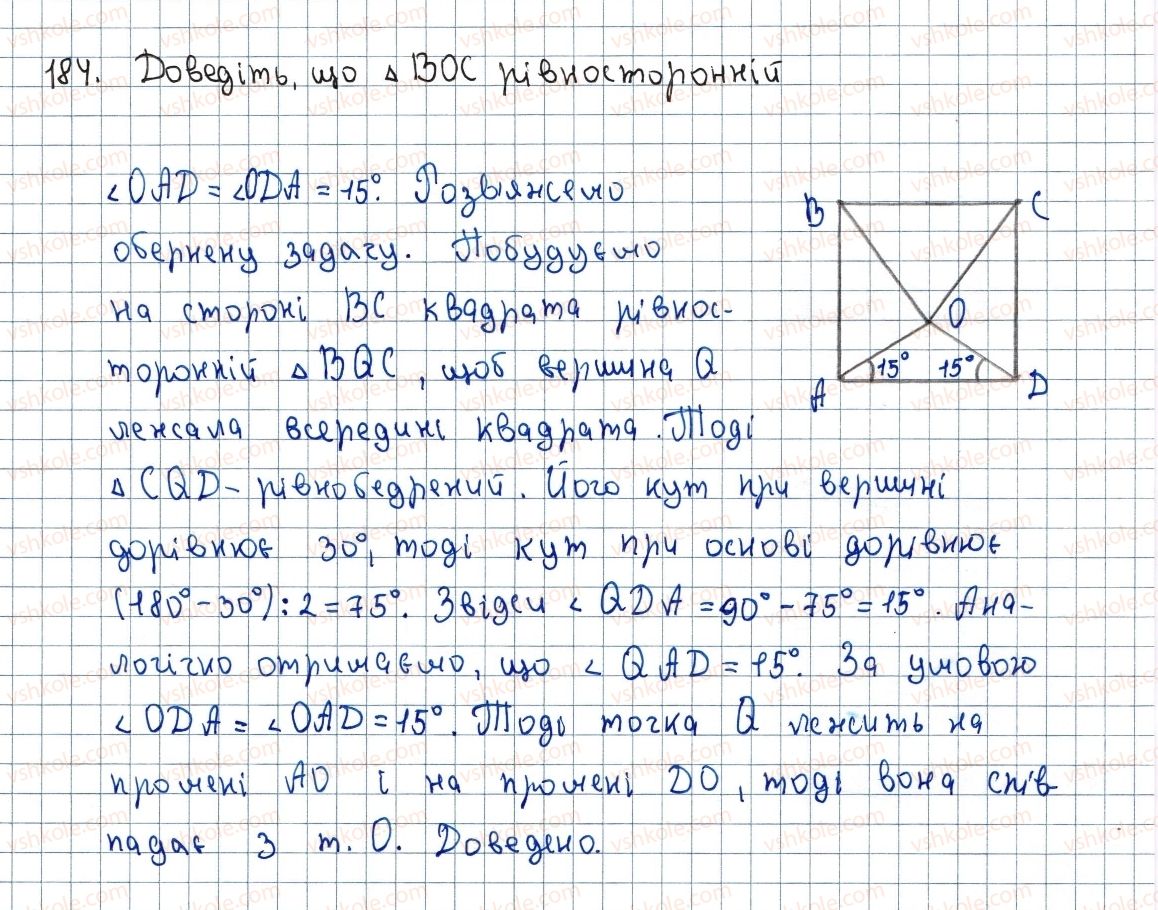 184. Доведіть, що △ BOC рівносторонній
∠OAD = ∠ODA = 15°. Розв'яжемо
обернену задачу. Побудуємо
на стороні BC квадрата рівнос-
торонній △ BQC, щоб вершина Q
лежала всередині квадрата. Тоді
△ CQD - рівнобедрений. Його кут при вершині
дорівнює 30°, тоді кут при основі дорівнює
(180° - 30°) : 2 = 75°. Звідси ∠ QDA = 90° - 75° = 15°. Ана-
логічно отримаємо, що ∠ QAD = 15°. За умовою
∠ODA = ∠OAD = 15°. Тоді точка Q лежить на
промені AO і на промені DO, тоді вона спів
падає з т. O. Доведено.
B
C
O
15°
15°
A
D
vshkole.com